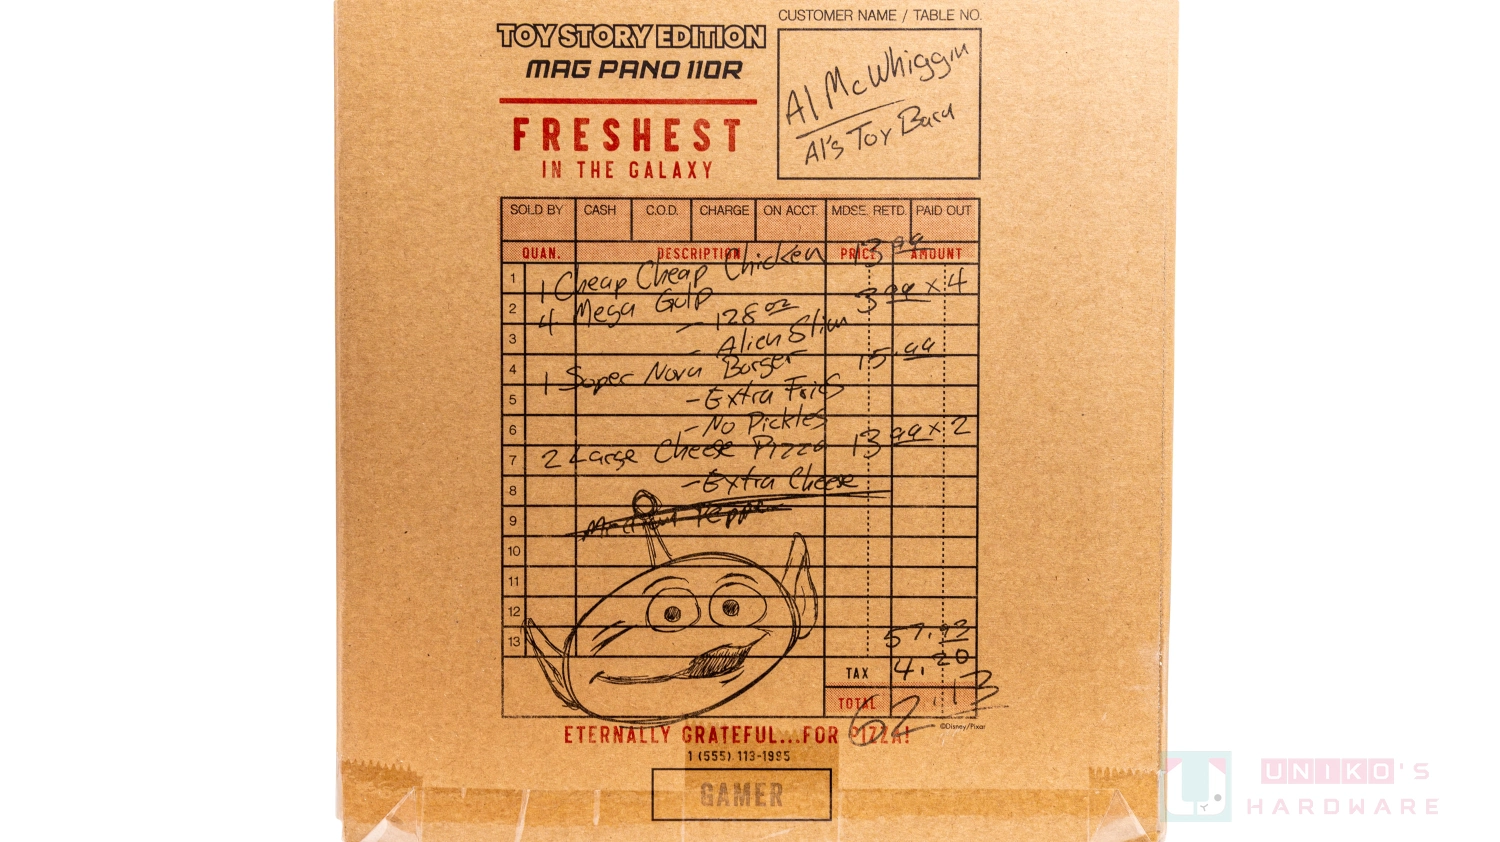 CUSTOMER NAME / TABLE NO.
TOY STORY EDITION
MAG PANO 110R
Al McWhiggin
Al's Toy Barn
FRESHEST
IN THE GALAXY
SOLD BY CASH C.O.D. CHARGE ON ACCT. MDSE. RETD. PAID OUT
QUAN. DESCRIPTION PRICE AMOUNT
1 1 Cheap Cheap Chicken 13.99
2 4 Mega Gulp 3.99 x 4
- 128 oz
3 - Alien Slim
4 1 Super Nova Burger 15.99
5 - Extra Fries
6 - No Pickles
7 2 Large Cheese Pizza 13.99 x 2
8 - Extra Cheese
9
10
11
12
13 57.93
TAX 4.20
TOTAL 62.13
©Disney/Pixar
ETERNALLY GRATEFUL...FOR PIZZA!
1 (555) 113-1995
GAMER
UNIKO'S
HARDWARE